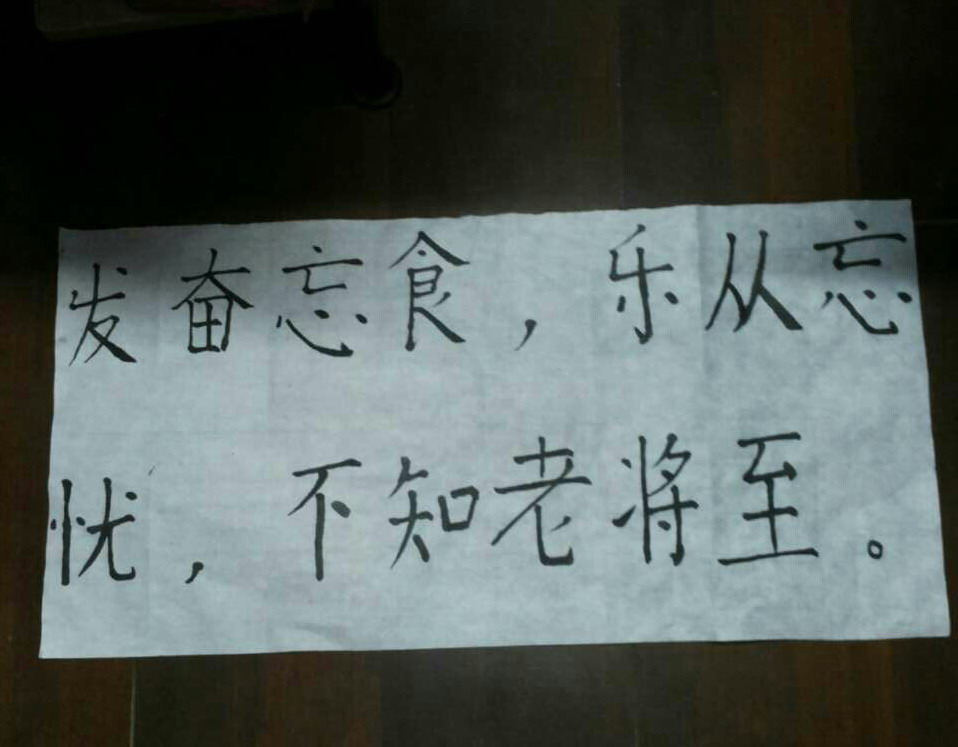 发奋忘食，乐从忘
忧，不知老将至。